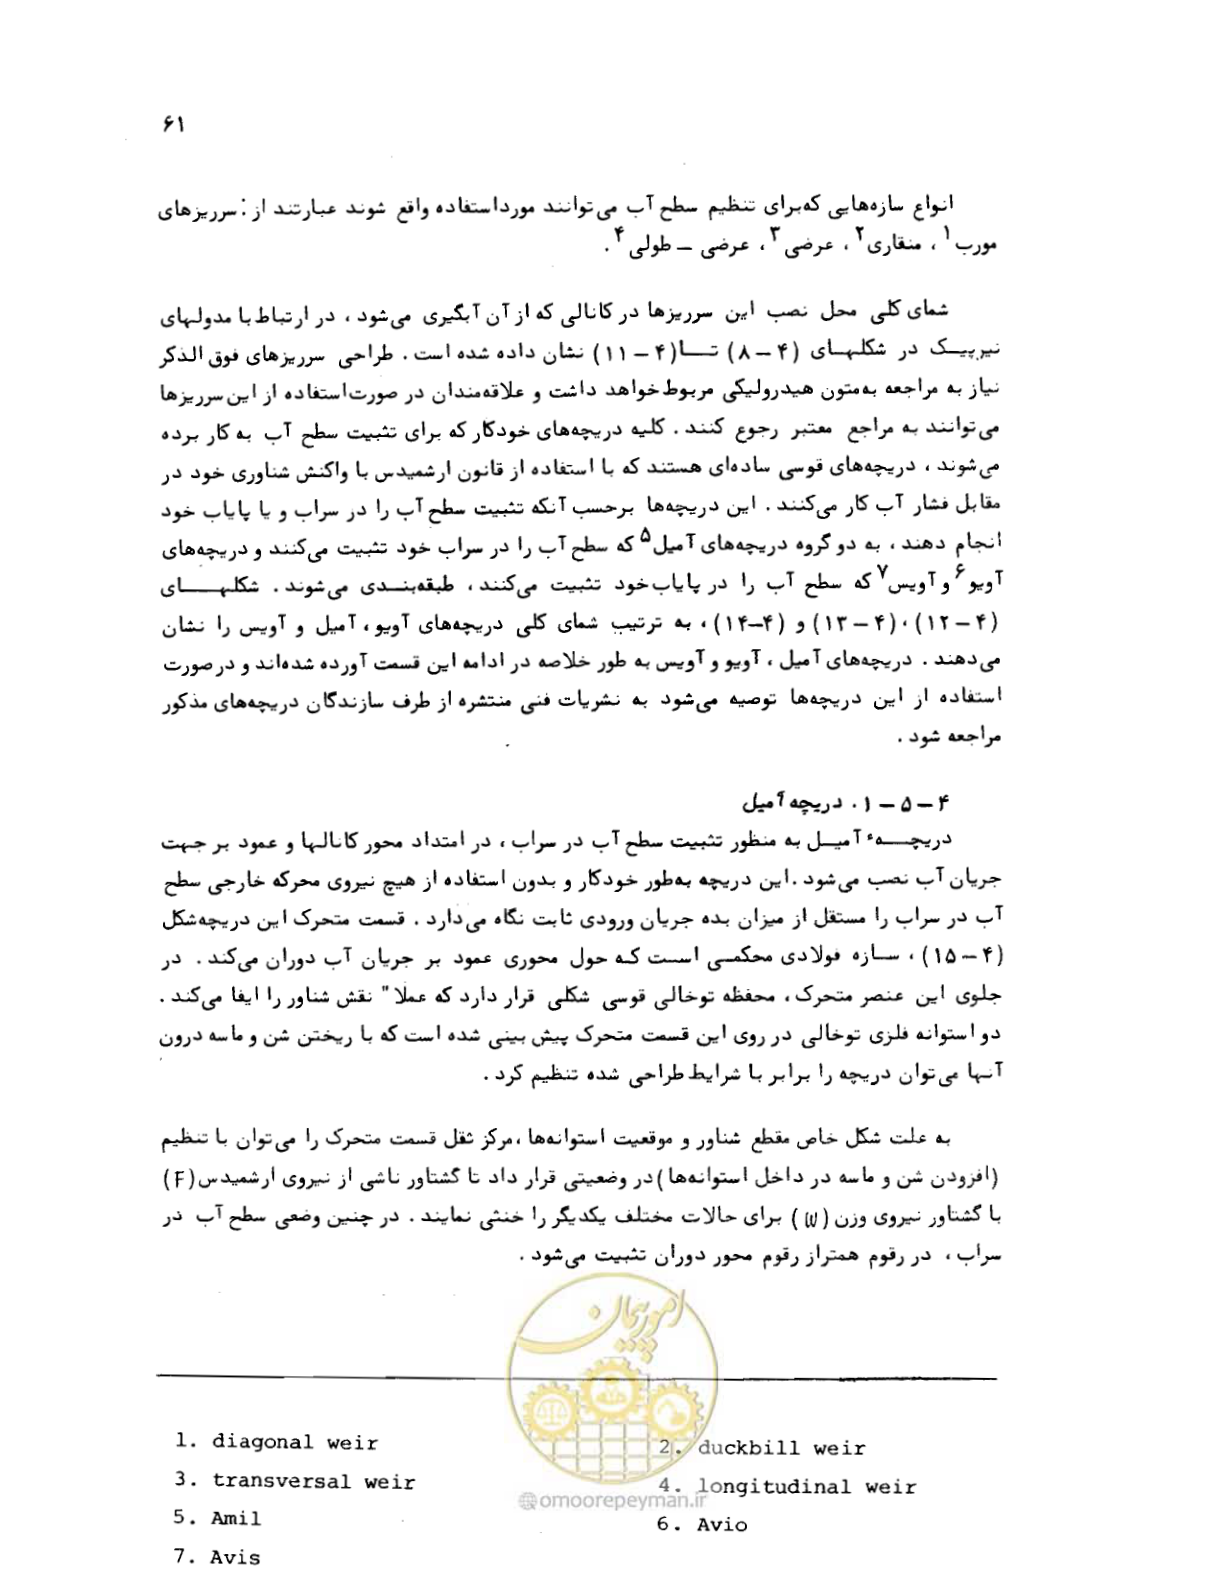 ۶۱
انواع سازه‌هایی که‌برای تنظیم سطح آب می‌توانند مورداستفاده واقع شوند عبارتند از : سرریزهای
مورب۱ ، منقاری۲ ، عرضی۳ ، عرضی – طولی۴ .
شمای کلی محل نصب این سرریزها در کانالی که از آن آبگیری می‌شود ، در ارتباط با مدولهای
نیرپیک در شکلهای (۴ – ۸) تا (۴ – ۱۱) نشان داده شده است . طراحی سرریزهای فوق الذکر
نیاز به مراجعه به‌متون هیدرولیکی مربوط خواهد داشت و علاقه‌مندان در صورت‌استفاده از این سرریزها
می‌توانند به مراجع معتبر رجوع کنند . کلیه دریچه‌های خودکار که برای تثبیت سطح آب به کار برده
می‌شوند ، دریچه‌های قوسی ساده‌ای هستند که با استفاده از قانون ارشمیدس با واکنش شناوری خود در
مقابل فشار آب کار می‌کنند . این دریچه‌ها برحسب آنکه تثبیت سطح آب را در سراب و یا پایاب خود
انجام دهند ، به دو گروه دریچه‌های آمیل۵ که سطح آب را در سراب خود تثبیت می‌کنند و دریچه‌های
آویو۶ و آویس۷ که سطح آب را در پایاب خود تثبیت می‌کنند ، طبقه‌بندی می‌شوند . شکلهای
(۴ – ۱۲) ، (۴ – ۱۳) و (۴–۱۴) ، به ترتیب شمای کلی دریچه‌های آویو ، آمیل و آویس را نشان
می‌دهند . دریچه‌های آمیل ، آویو و آویس به طور خلاصه در ادامه این قسمت آورده شده‌اند و در صورت
استفاده از این دریچه‌ها توصیه می‌شود به نشریات فنی منتشره از طرف سازندگان دریچه‌های مذکور
مراجعه شود .
۴ – ۵ – ۱ . دریچه آمیل
دریچهٔ آمیل به منظور تثبیت سطح آب در سراب ، در امتداد محور کانالها و عمود بر جهت
جریان آب نصب می‌شود . این دریچه به‌طور خودکار و بدون استفاده از هیچ نیروی محرکه خارجی سطح
آب در سراب را مستقل از میزان بده جریان ورودی ثابت نگاه می‌دارد . قسمت متحرک این دریچه‌شکل
(۴ – ۱۵) ، سازه فولادی محکمی است که حول محوری عمود بر جریان آب دوران می‌کند . در
جلوی این عنصر متحرک ، محفظه توخالی قوسی شکلی قرار دارد که عملا" نقش شناور را ایفا می‌کند .
دو استوانه فلزی توخالی در روی این قسمت متحرک پیش بینی شده است که با ریختن شن و ماسه درون
آنها می‌توان دریچه را برابر با شرایط طراحی شده تنظیم کرد .
به علت شکل خاص مقطع شناور و موقعیت استوانه‌ها ،مرکز ثقل قسمت متحرک را می‌توان با تنظیم
(افزودن شن و ماسه در داخل استوانه‌ها) در وضعیتی قرار داد تا گشتاور ناشی از نیروی ارشمیدس (F)
با گشتاور نیروی وزن (W) برای حالات مختلف یکدیگر را خنثی نمایند . در چنین وضعی سطح آب در
سراب ، در رقوم همتراز رقوم محور دوران تثبیت می‌شود .
امور پیمان
1. diagonal weir
2. duckbill weir
3. transversal weir
4. longitudinal weir
@omoorepeyman.ir
5. Amil
6. Avio
7. Avis